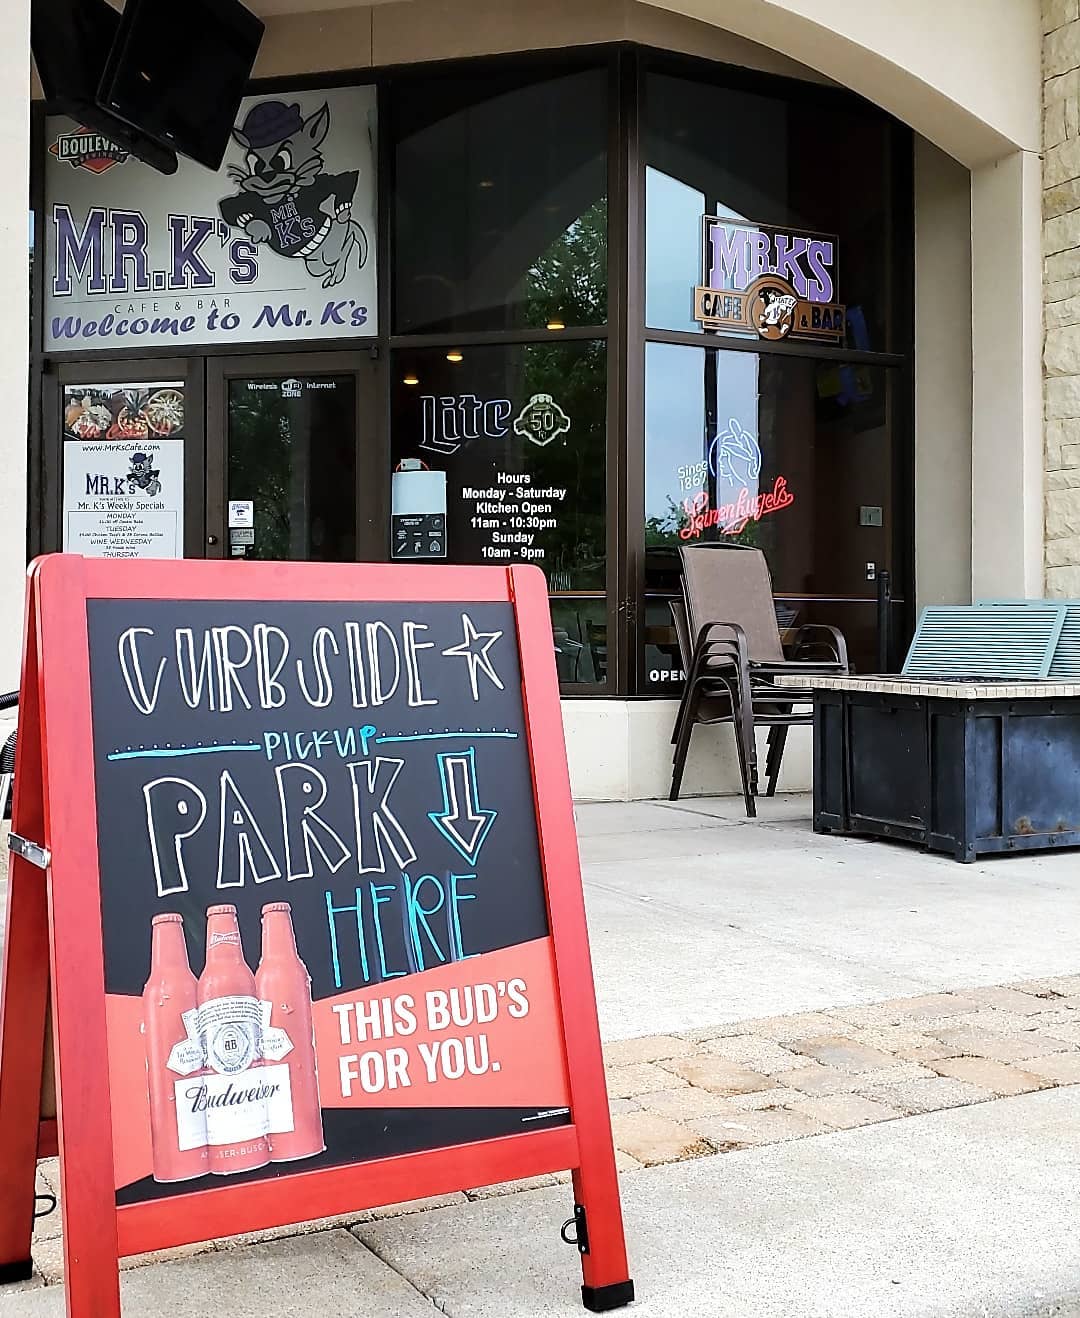 MR.K's
CAFE & BAR
Welcome to Mr. K's
MR
K's
MR.K'S
CAFE
& BAR
Wireless Wi Fi Internet
ZONE
www.MrKsCafe.com
MR.K's
Mr. K's Weekly Specials
MONDAY
TUESDAY
WINE WEDNESDAY
THURSDAY
Lite
50
Hours
Monday - Saturday
Kitchen Open
11am - 10:30pm
Sunday
10am - 9pm
Since
1867
Leinenkugel's
OPEN
CURBSIDE
PICKUP
PARK
HERE
THIS BUD'S
FOR YOU.
Budweiser